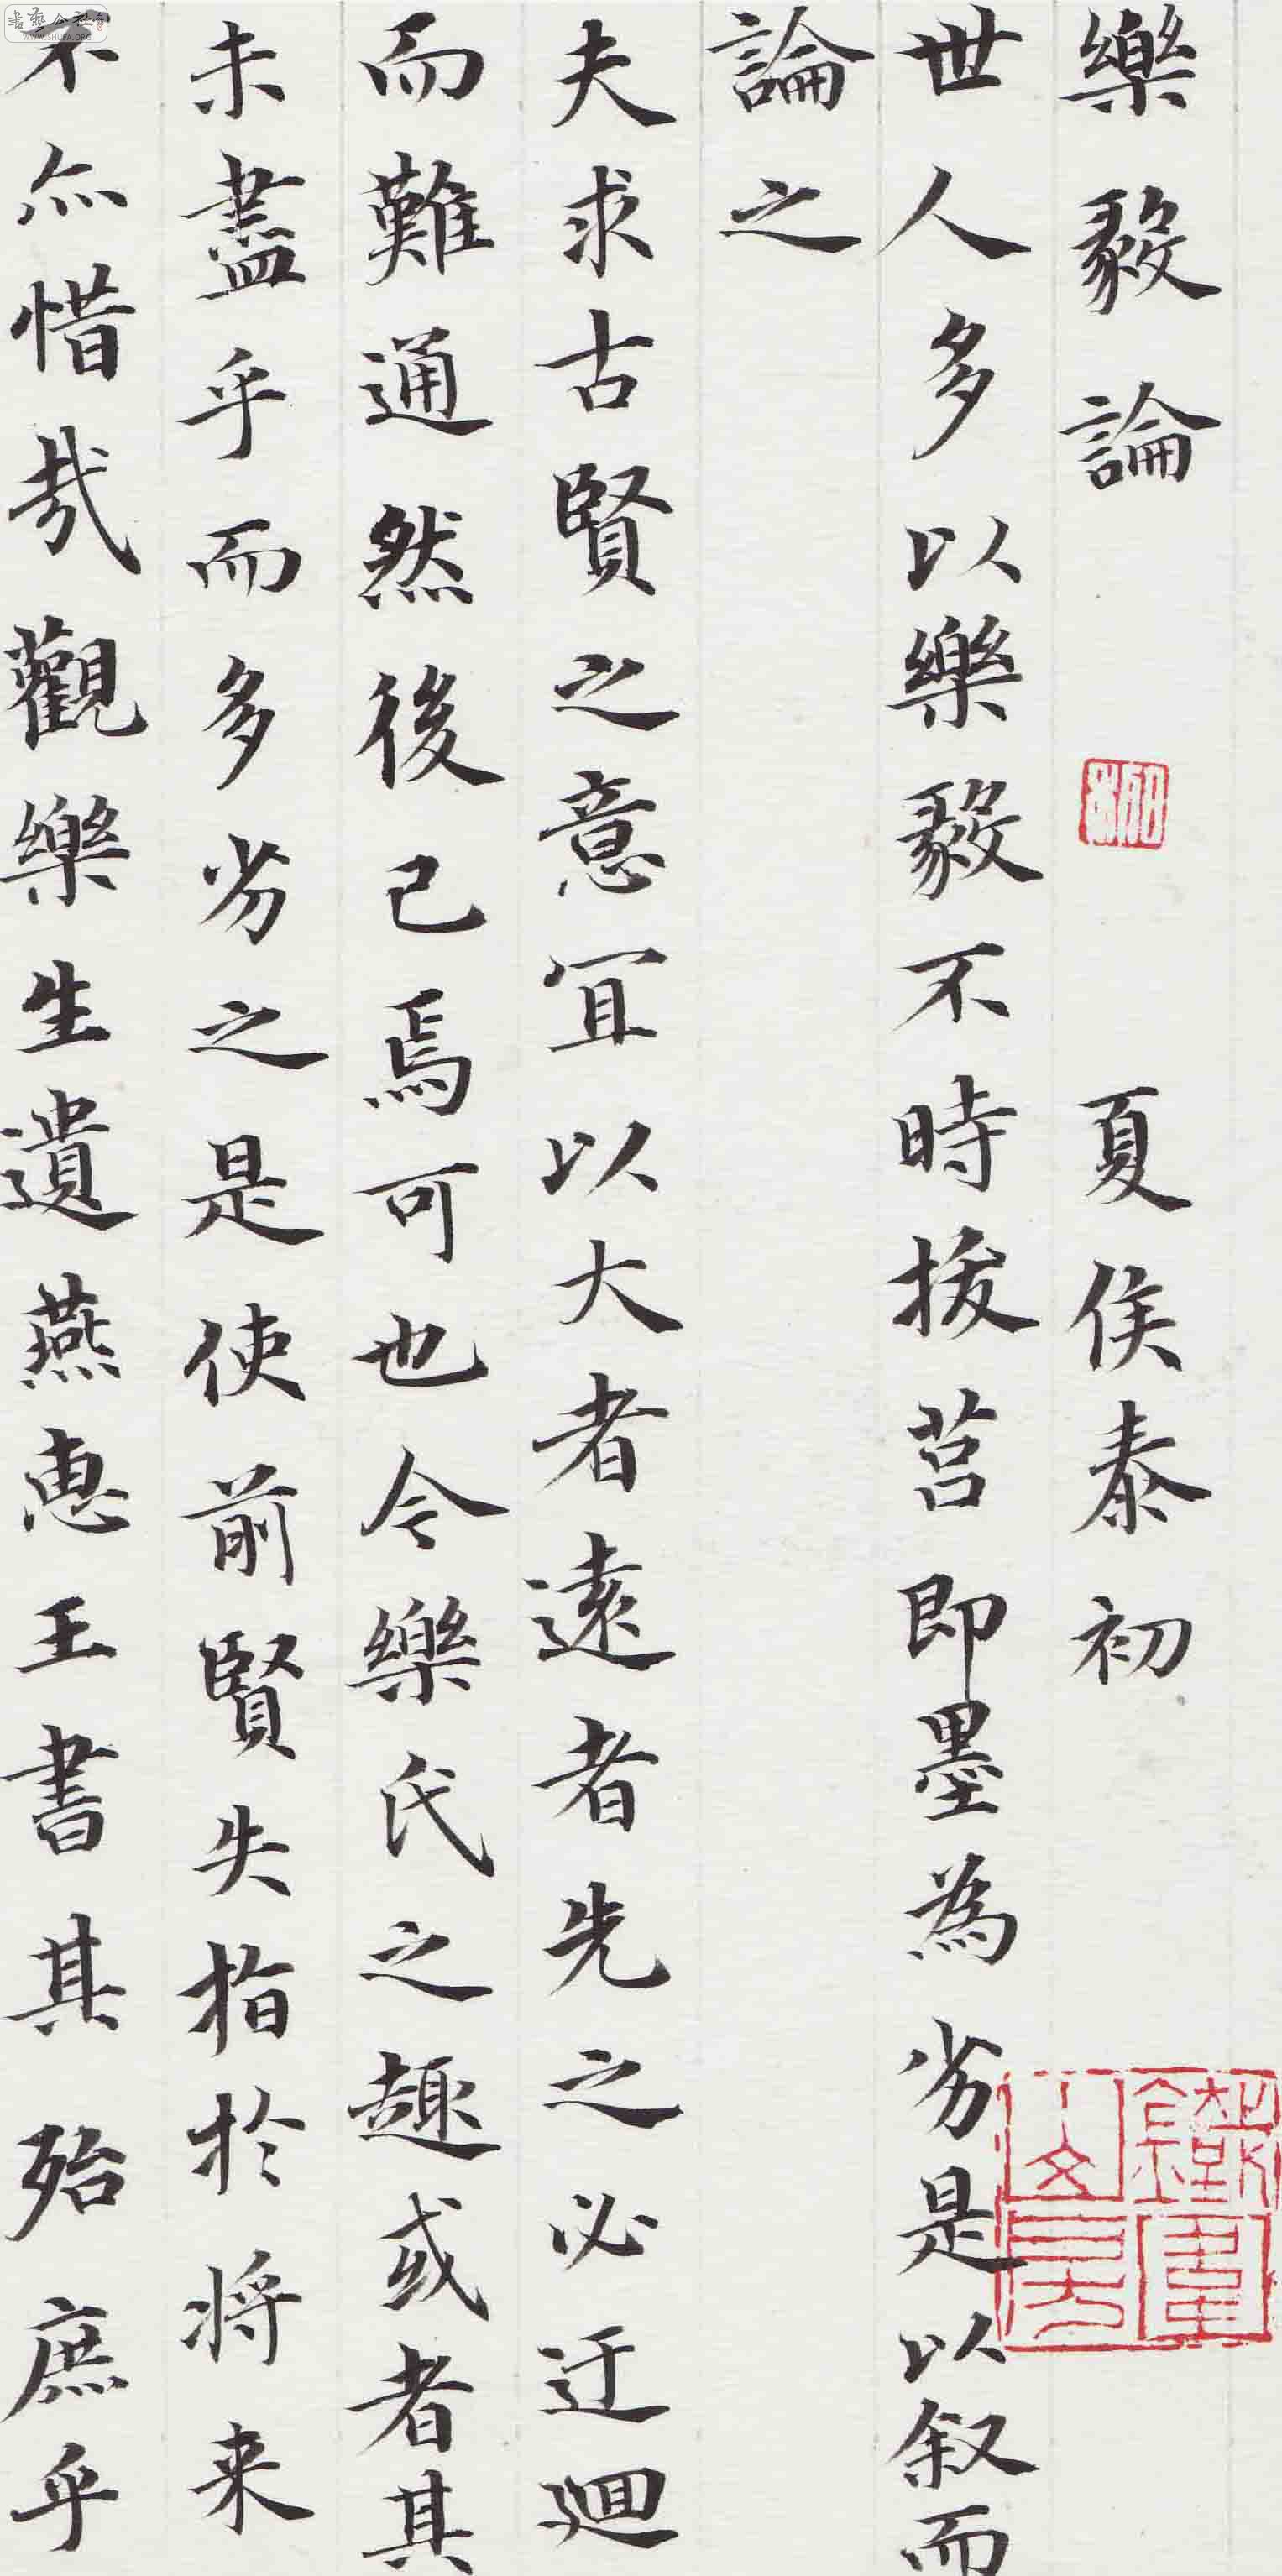 樂毅論 夏侯泰初
世人多以樂毅不時拔莒即墨為劣是以叙而
論之
夫求古賢之意宜以大者遠者先之必迂迴
而難通然後已焉可也今樂氏之趣或者其
未盡乎而多劣之是使前賢失指於将来
不亦惜哉觀樂生遺燕惠王書其殆庶乎
書藝公社
WWW.SHUFA.ORG